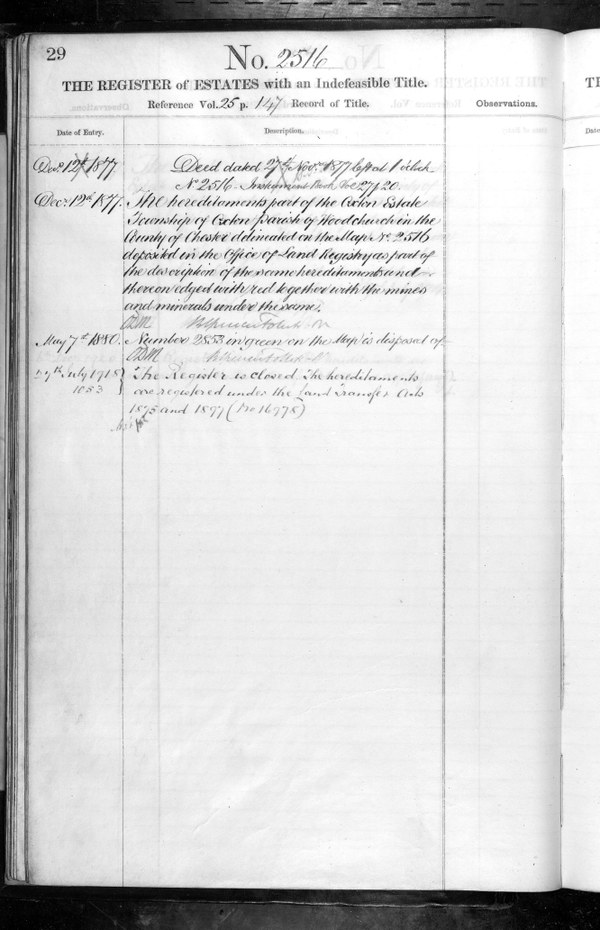 29
No. 2516
THE REGISTER of ESTATES with an Indefeasible Title.
Reference Vol. 25 p. 147 Record of Title.
Observations.
Date of Entry.
Description.
Decr. 12th 1877
Deed dated 27th Novr. 1877 left at 1 o'clock
No 2516 - Instrument Book Vol 27 p 20.
Decr. 12th 1877.
The hereditaments part of the Oxton Estate
Township of Oxton Parish of Woodchurch in the
County of Chester delineated on the Map No. 2516
deposited in the Office of Land Registry as part of
the description of the same hereditaments and
thereon edged with red together with the mines
and minerals under the same.
May 7th 1880.
Number 2853 in green on the Map is disposed of
29th July 1918
1053
The Register is closed. The hereditaments
are registered under the Land Transfer Acts
1875 and 1897 (No 16978)
TH
Date